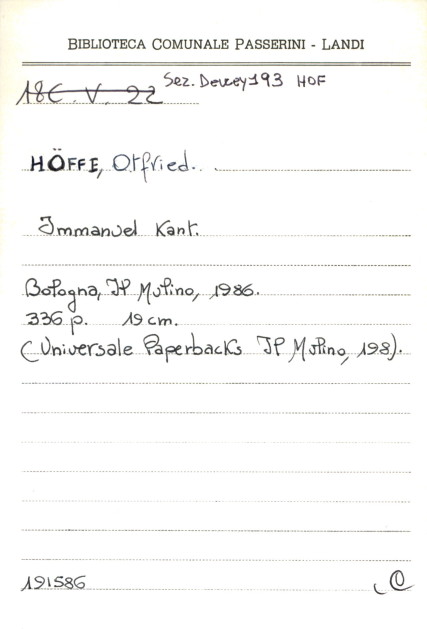 BIBLIOTECA COMUNALE PASSERINI - LANDI
18C. V. 22 Sez. Dewey 193 HOF
HÖFFE, Otfried.
Immanuel Kant.
Bologna, Il Mulino, 1986.
336 p. 19 cm.
(Universale Paperbacks Il Mulino, 198).
191586